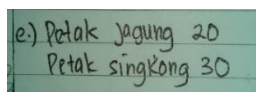 e.) Petak jagung 20
Petak singkong 30